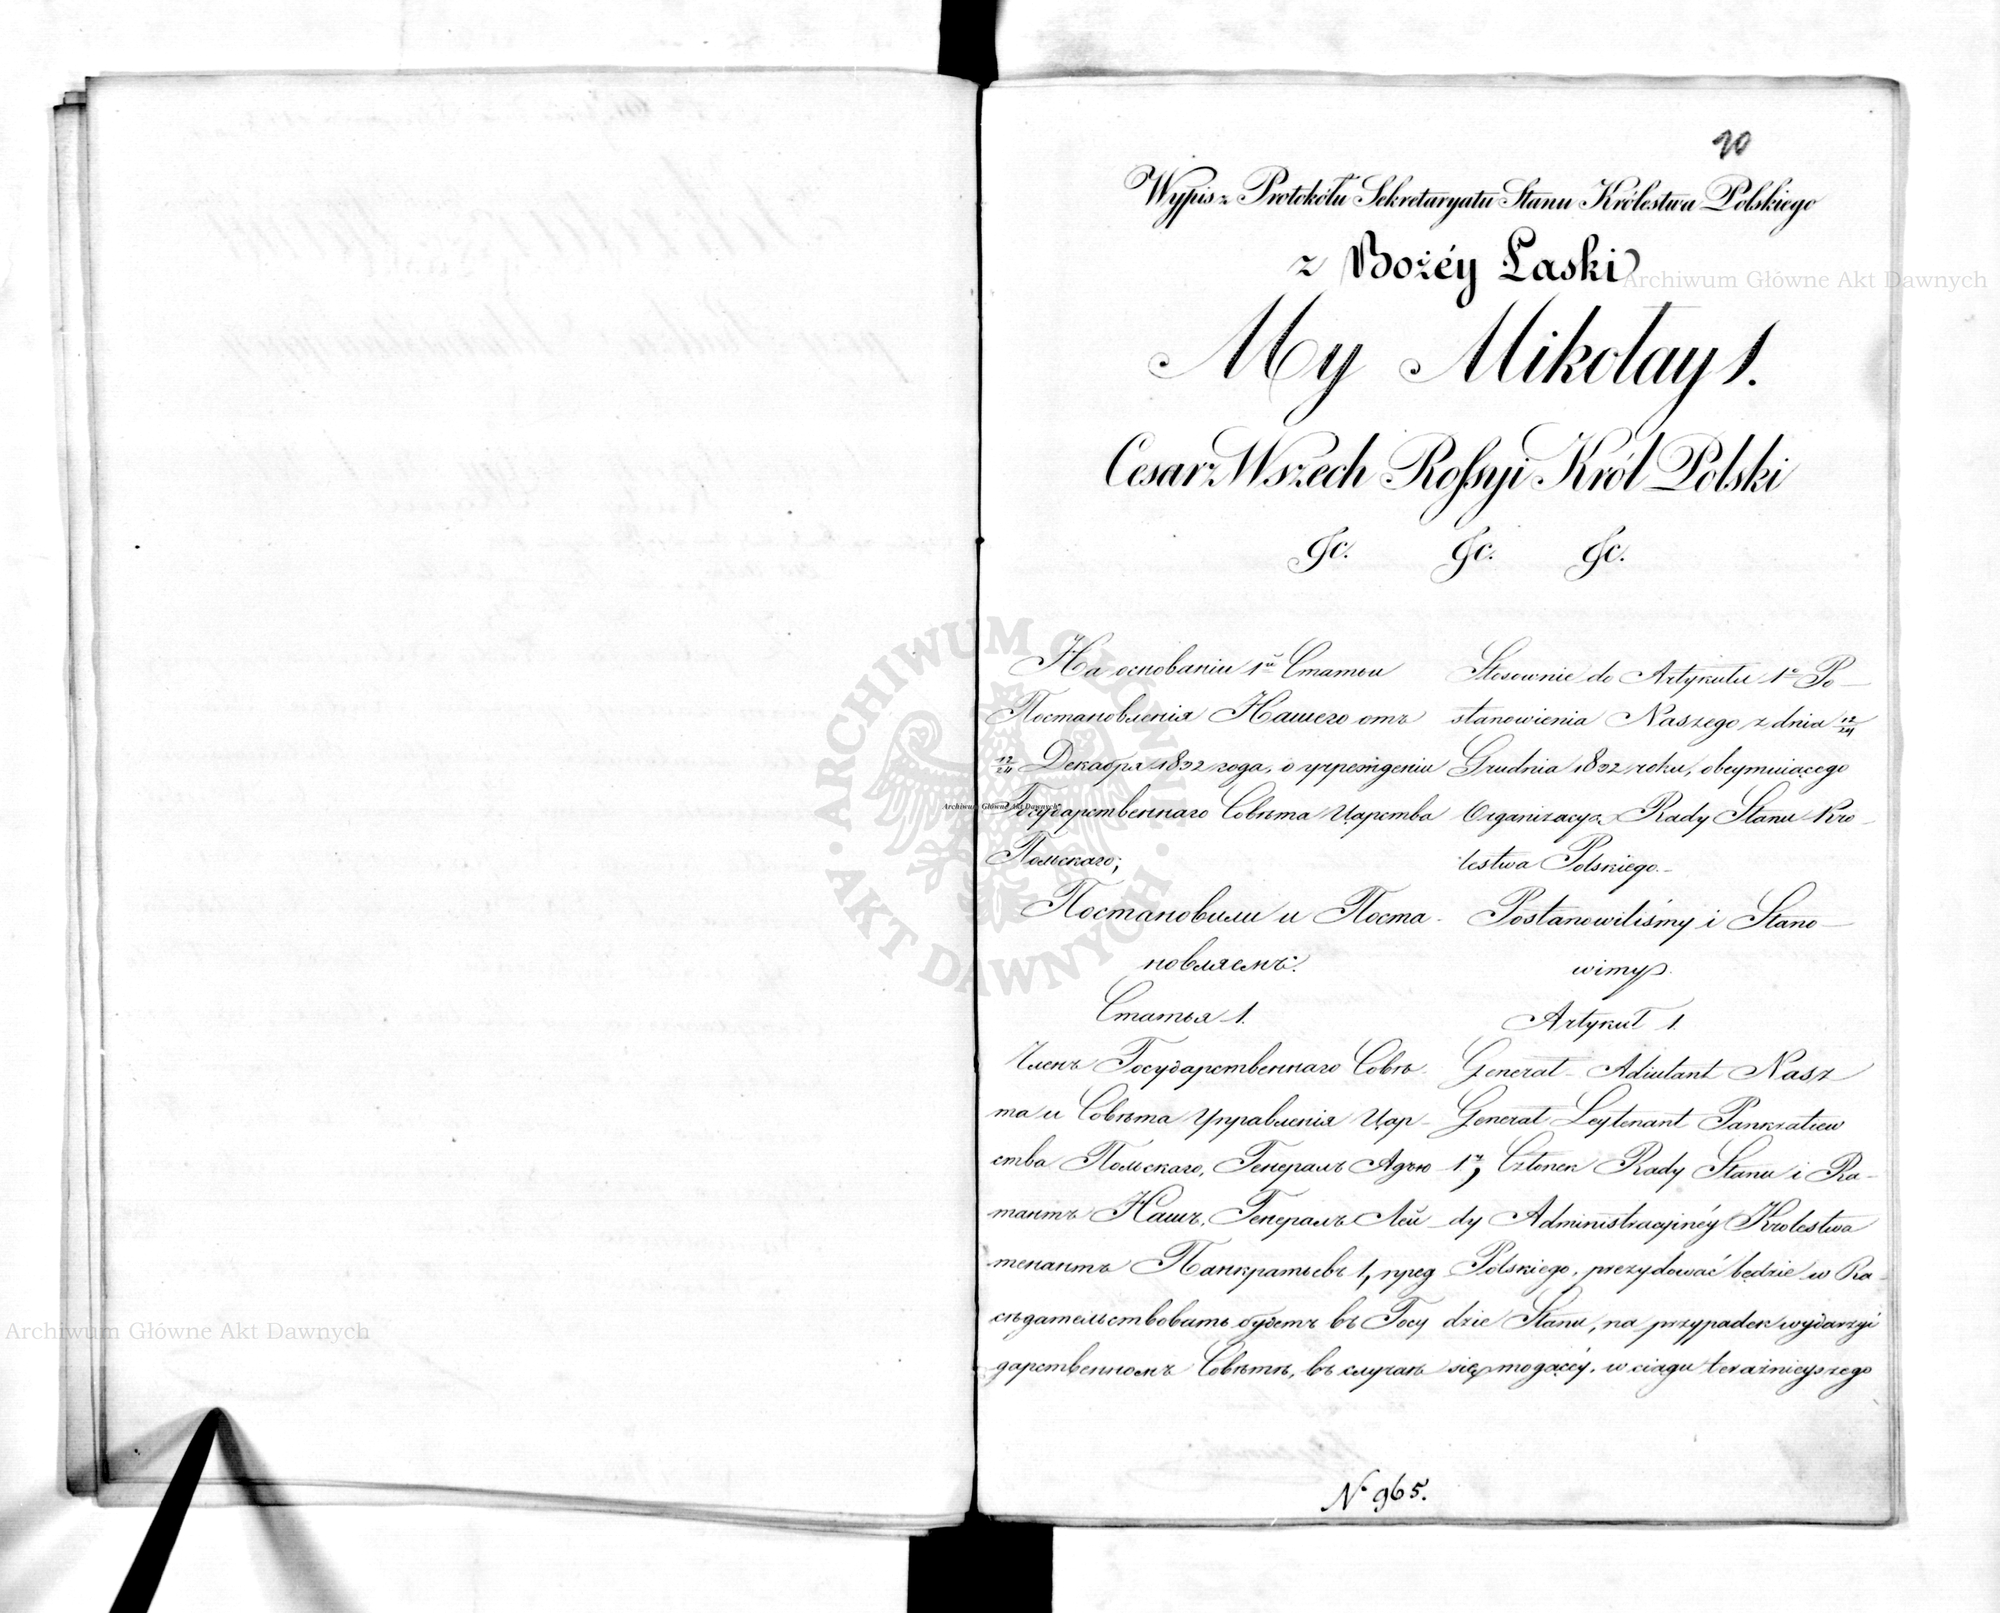 90
Wypis z Protokółu Sekretaryatu Stanu Królestwa Polskiego
z Bożéy Łaski
My Mikołay 1.
Cesarz Wszech Rossyi Król Polski
&c. &c. &c.
На основаніи 1й Статьи
Постановленія Нашего отъ
12/24 Декабря 1832 года, о учрежденіи
Государственнаго Совѣта Царства
Польскаго;
Постановили и Поста-
новляемъ:
Статья 1.
Членъ Государственнаго Совѣ-
та и Совѣта Управленія Цар-
ства Польскаго, Генералъ Адъю-
тантъ Нашъ, Генералъ Лей-
тенантъ Панкратьевъ 1, пред
сѣдательствовать будетъ въ Госу
дарственномъ Совѣтѣ, въ случаѣ
Stosownie do Artykułu 1o Po-
stanowienia Naszego z dnia 12/24
Grudnia 1832 roku, obeymuiącego
Organizacyą Rady Stanu Kró-
lestwa Polskiego.-
Postanowiliśmy i Stano-
wimy.
Artykuł 1.
Generał-Adiutant Nasz
Generał Leytenant Pankratiew
1y, Członek Rady Stanu i Ra-
dy Administracyinéy Krolestwa
Polskiego, prezydować będzie w Ra-
dzie Stanu, na przypadek wydarzyć
się mogącéy, w ciągu teraźnieyszego
No 965.
Archiwum Główne Akt Dawnych
Archiwum Główne Akt Dawnych
Archiwum Główne Akt Dawnych
ARCHIWUM GŁÓWNE
AKT DAWNYCH